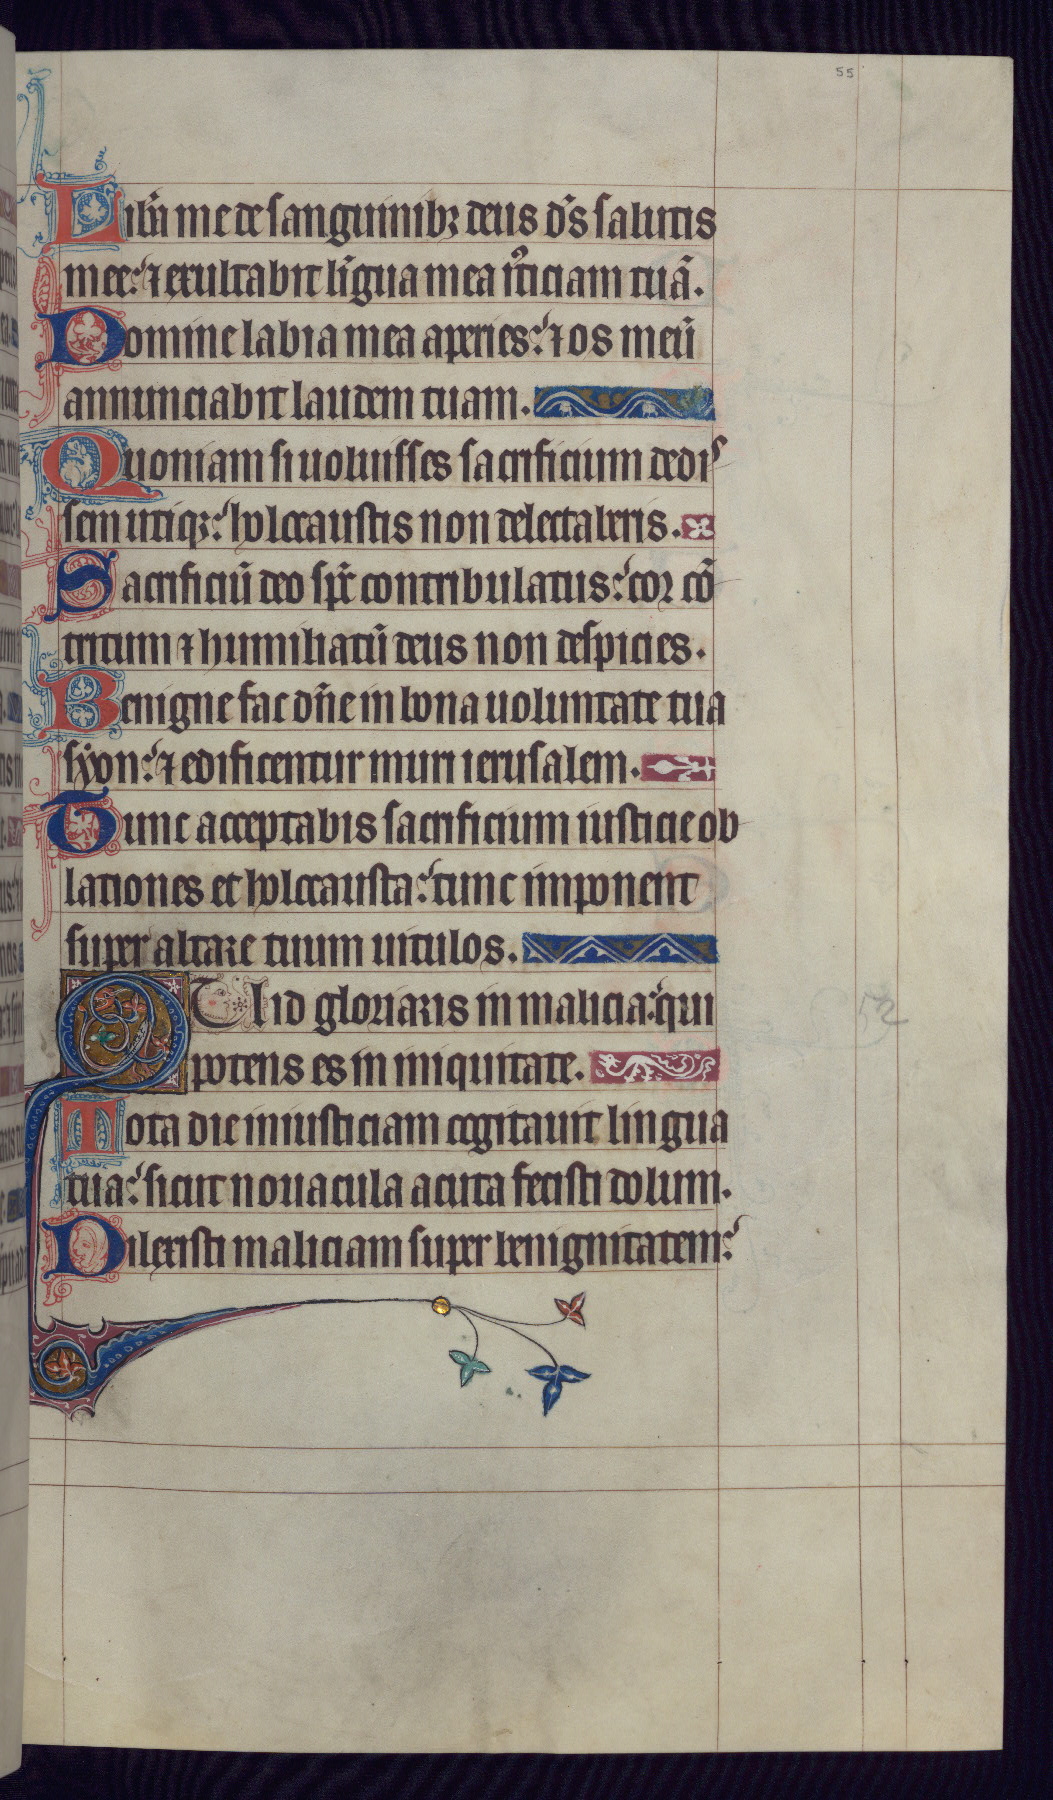 55
Lib̃a me de sanguinibꝫ deus dñs salutis
mee: ⁊ exultabit lĩgua mea iᷤticiam tuã.
Domine labia mea aperies: ⁊ os meũ
annunciabit laudem tuam.
Quoniam si uoluisses sacrificium dedis
sem utiqꝫ: holocaustis non delectaberis.
Sacrificiũ deo sp̃c contribulatus: cor cõ
tritum ⁊ humiliatũ deus non despicies.
Benigne fac dñe in bona uoluntate tua
syon: ⁊ edificentur muri ierusalem.
Tunc acceptabis sacrificium iusticie ob
lationes et holocausta: tunc imponent
super altare tuum uitulos.
QUid gloriaris in malicia: qui
potens es in iniquitate.
52
Tota die iniusticiam cogitauit lingua
tua: sicut nouacula acuta fecisti dolum.
Dilexisti maliciam super benignitatem: